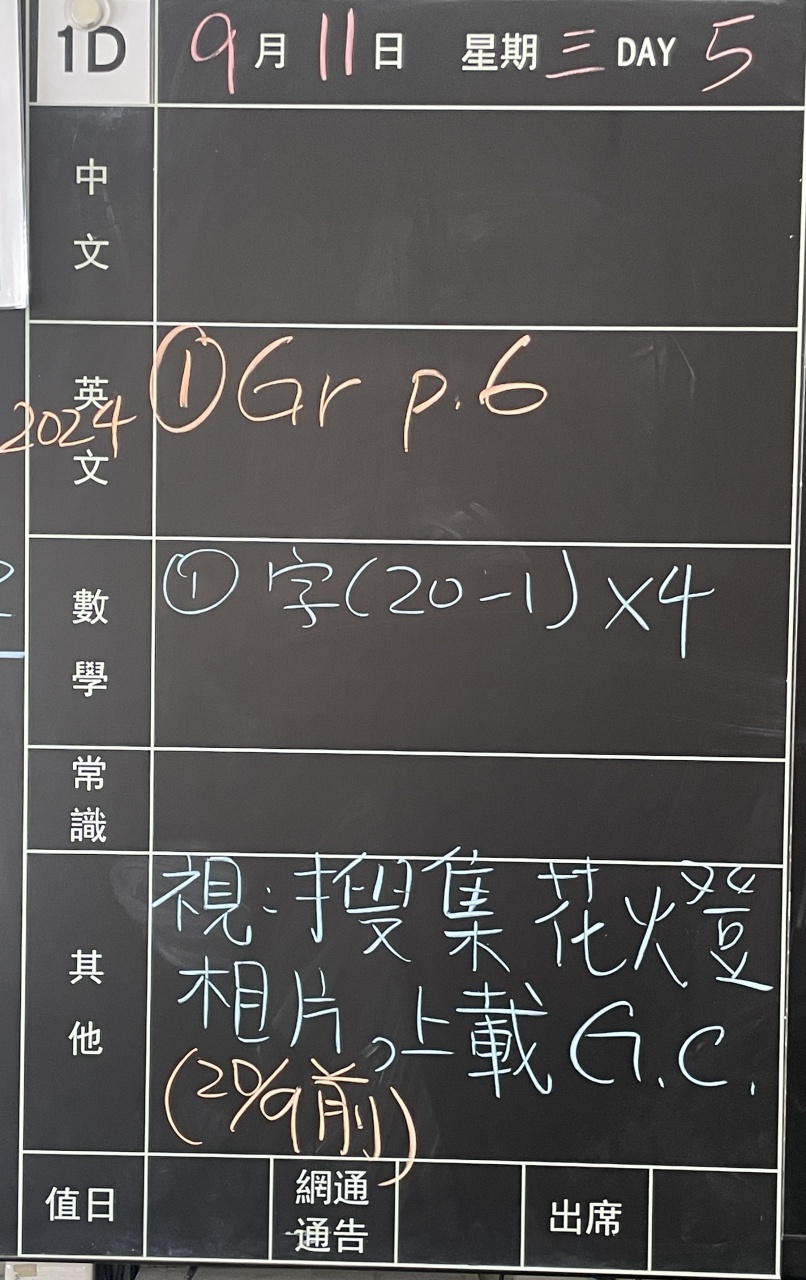 1D 9月11日 星期三 DAY 5
中文
英文 ① Gr p.6
2024
數學 ① 字(20-1)×4
常識
其他 視:搜集花燈
相片,上載 G.C.
(20/9前)
值日 網通通告 出席